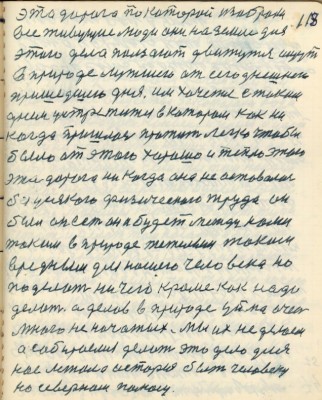 эта дорога по которой изобрали 118
все живущие люди они на земле для
этого дела ползают движутся ищут
в природе лучшего от сегодняшнего
пришедшего дня. им хочется с таким
днем устретится в котором как ни
когда пришлось прожить легко чтобы
было от этого хорошо и тепло этого
эта дорога ни когда она не оставалась
без всякого физического труда он
был он есть он и будет между нами
таким в природе тяжелым таким
вредным для нашего человека но
поделат ни чего кроме как надо
делат. а делов в природе уйма очен
много не початых. мы их не делаем
а собираемся делат это дело для
нас встала история быть человеку
на северном полюсу.